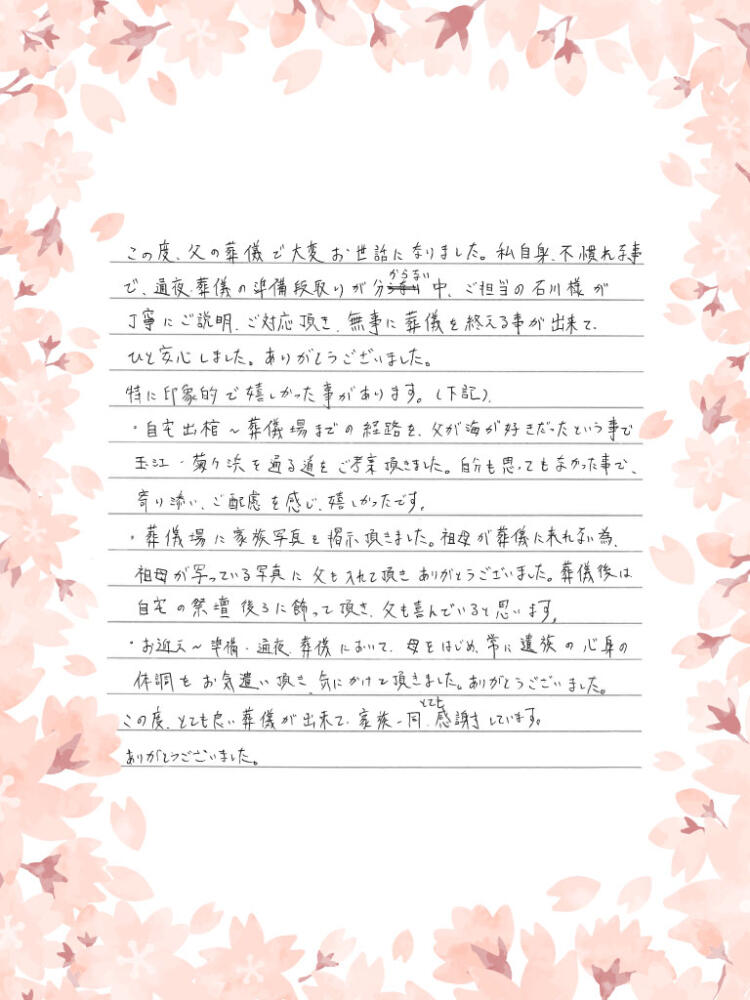 この度、父の葬儀で大変お世話になりました。私自身、不慣れな事
で、通夜・葬儀の準備段取りが分からない中、ご担当の石川様が
丁寧にご説明、ご対応頂き、無事に葬儀を終える事が出来て、
ひと安心しました。ありがとうございました。
特に印象的で嬉しかった事があります。(下記)
・自宅出棺～葬儀場までの経路を、父が海が好きだったという事で
玉江・菊ヶ浜を通る道をご考案頂きました。自分も思ってもなかった事で、
寄り添い、ご配慮を感じ、嬉しかったです。
・葬儀場に家族写真を掲示頂きました。祖母が葬儀に来れない為、
祖母が写っている写真に父も入れて頂きありがとうございました。葬儀後は
自宅の祭壇後ろに飾って頂き、父も喜んでいると思います。
・お迎え～準備・通夜、葬儀において、母をはじめ、常に遺族の心身の
体調をお気遣い頂き、気にかけて頂きました。ありがとうございました。
この度、とても良い葬儀が出来て、家族一同、とても感謝しています。
ありがとうございました。